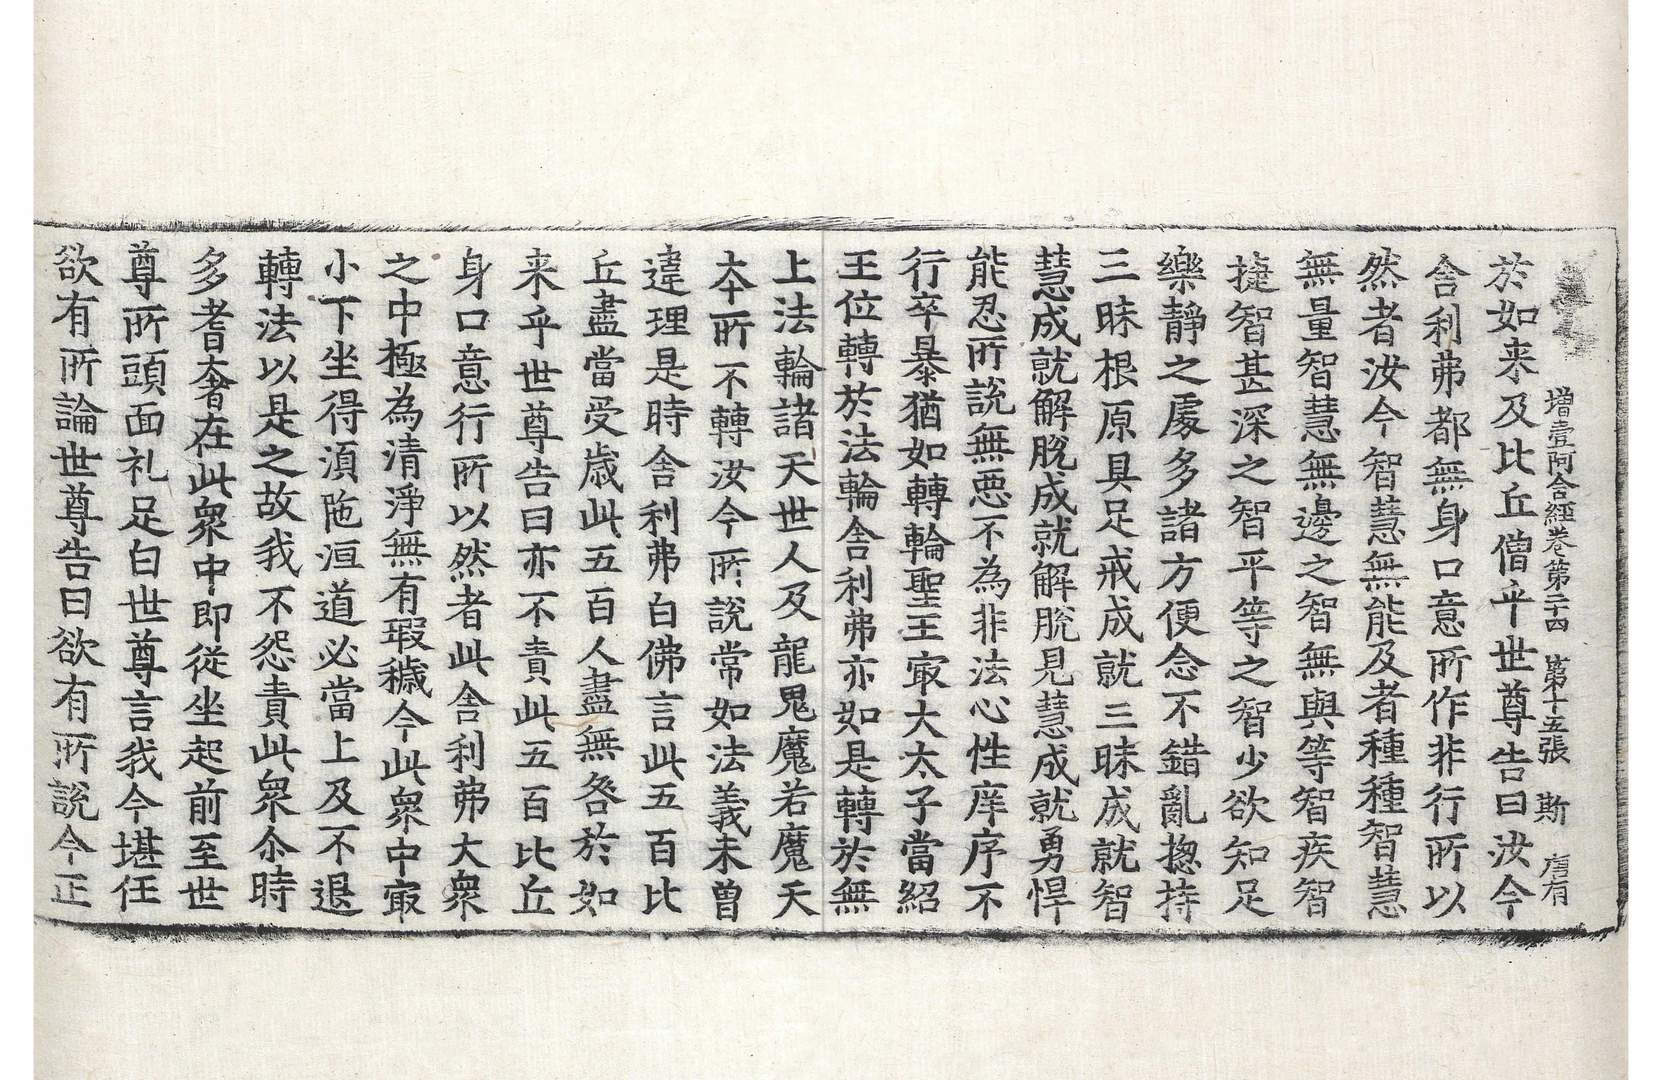 增壹阿含經卷第二十四 第十五張 斯 唐有
於如来及比丘僧乎世尊告曰汝今
舍利弗都無身口意所作非行所以
然者汝今智慧無能及者種種智慧
無量智慧無邊之智無與等智疾智
捷智甚深之智平等之智少欲知足
樂靜之處多諸方便念不錯亂揔持
三昧根原具足戒成就三昧成就智
慧成就解脫成就解脫見慧成就勇悍
能忍所說無惡不為非法心性庠序不
行卒暴猶如轉輪聖王㝡大太子當紹
王位轉於法輪舍利弗亦如是轉於無
上法輪諸天世人及龍鬼魔若魔天
本所不轉汝今所說常如法義未曾
違理是時舍利弗白佛言此五百比
丘盡當受歲此五百人盡無咎於如
来乎世尊告曰亦不責此五百比丘
身口意行所以然者此舍利弗大衆
之中極為清淨無有瑕穢今此衆中㝡
小下坐得湏陁洹道必當上及不退
轉法以是之故我不怨責此衆尒時
多耆奢在此衆中即從坐起前至世
尊所頭面礼足白世尊言我今堪任
欲有所論世尊告曰欲有所說今正